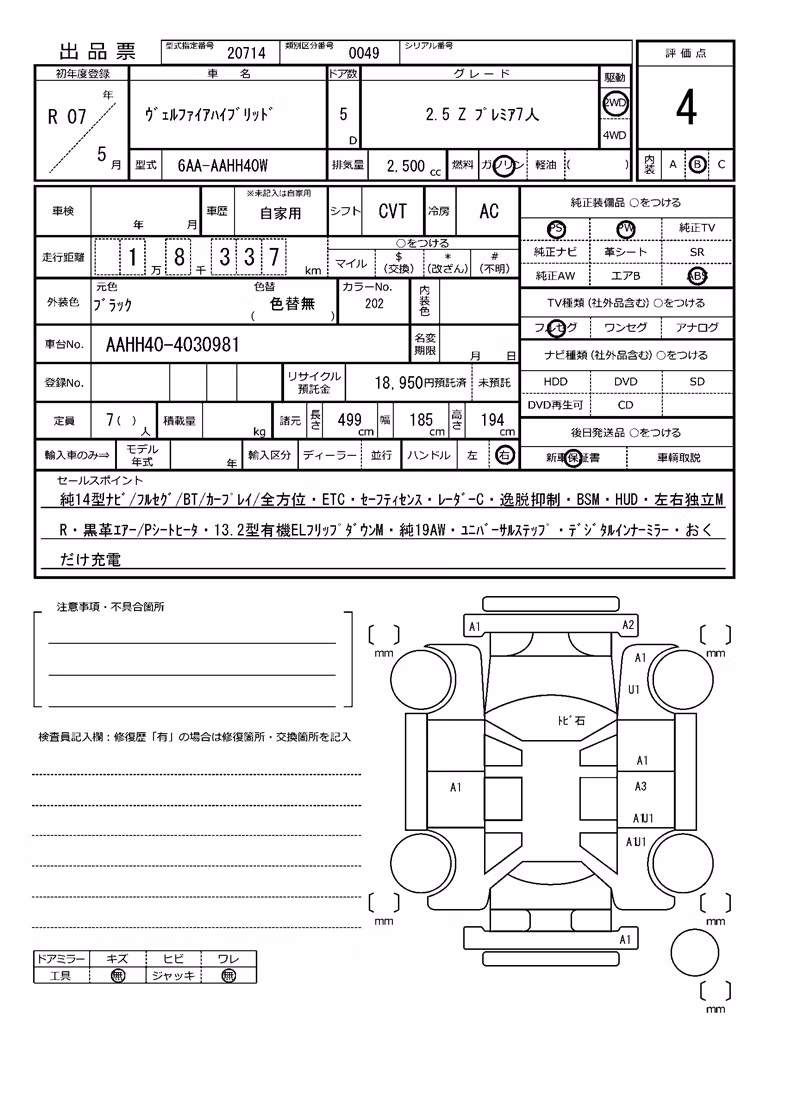 出品票 型式指定番号 20714 類別区分番号 0049 シリアル番号 評価点
初年度登録 車名 ドア数 グレード 駆動
R 07 年 5 月 ヴェルファイアハイブリッド 5 D 2.5 Z プレミア7人 2WD 4WD 4
型式 6AA-AAHH40W 排気量 2,500 cc 燃料 ガソリン 軽油 ( ) 内装 A B C
車検 年 月 車歴 ※未記入は自家用 自家用 シフト CVT 冷房 AC 純正装備品 ○をつける
PS PW 純正TV
走行距離 1 万 8 千 3 3 7 km ○をつける
マイル $ (交換) * (改ざん) # (不明)
純正ナビ 革シート SR
純正AW エアB ABS
外装色 元色 ブラック 色替 ( 色替無 ) カラーNo. 202 内装色
TV種類 (社外品含む) ○をつける
フルセグ ワンセグ アナログ
車台No. AAHH40-4030981 名変期限 月 日
ナビ種類 (社外品含む) ○をつける
登録No. リサイクル預託金 18,950円預託済 未預託
HDD DVD SD
DVD再生可 CD
定員 7( ) 人 積載量 kg 諸元 長さ 499 cm 幅 185 cm 高さ 194 cm
後日発送品 ○をつける
輸入車のみ⇒ モデル年式 年 輸入区分 ディーラー 並行 ハンドル 左 右
新車保証書 車輌取説
セールスポイント
純14型ナビ/フルセグ/BT/カープレイ/全方位・ETC・セーフティセンス・レーダーC・逸脱抑制・BSM・HUD・左右独立M
R・黒革エアー/Pシートヒータ・13.2型有機ELフリップダウンM・純19AW・ユニバーサルステップ・デジタルインナーミラー・おく
だけ充電
注意事項・不具合箇所
検査員記入欄：修復歴「有」の場合は修復箇所・交換箇所を記入
A1 A2
mm mm
A1
U1
トビ石
A1
A1 A3
A1U1
A1U1
mm mm
A1
mm
ドアミラー キズ ヒビ ワレ
工具 無 ジャッキ 無